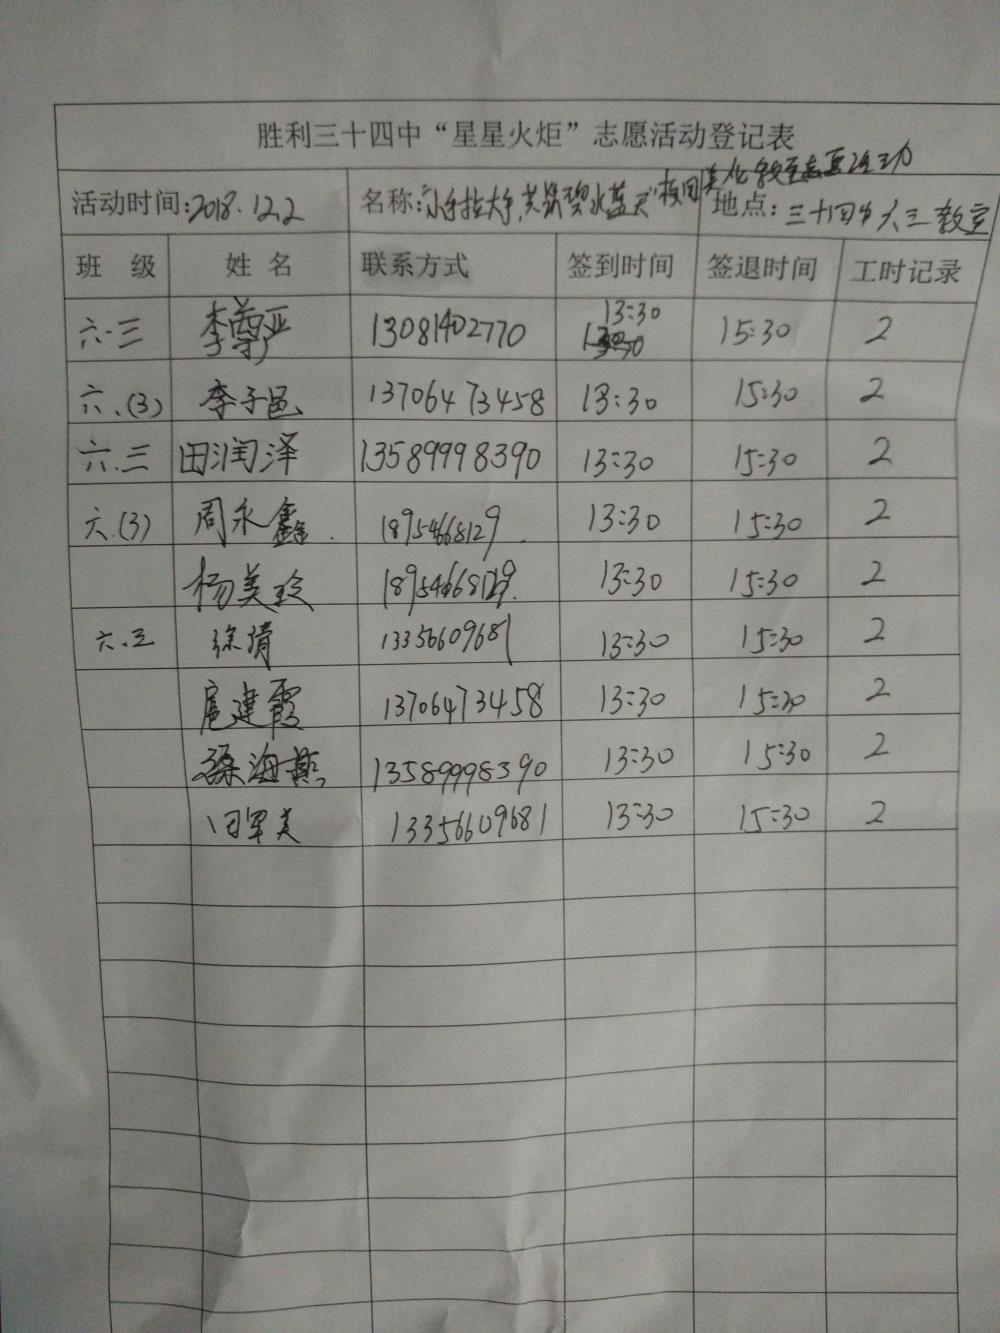 胜利三十四中“星星火炬”志愿活动登记表
活动时间:2018.12.2 名称:“小手拉大手,共筑碧水蓝天”校园美化教室志愿活动 地点:三十四中六三教室
班 级 姓 名 联系方式 签到时间 签退时间 工时记录
六.三 李尊严 13081402770 13:30 15:30 2
六.(3) 李子邑 13706473458 13:30 15:30 2
六.三 田润泽 13589998390 13:30 15:30 2
六.(3) 周永鑫. 18954668129. 13:30 15:30 2
杨美玲 18954668129. 13:30 15:30 2
六.三 徐清 13356609681 13:30 15:30 2
扈建霞 13706473458 13:30 15:30 2
海燕 13589998390 13:30 15:30 2
军美 13356609681 13:30 15:30 2